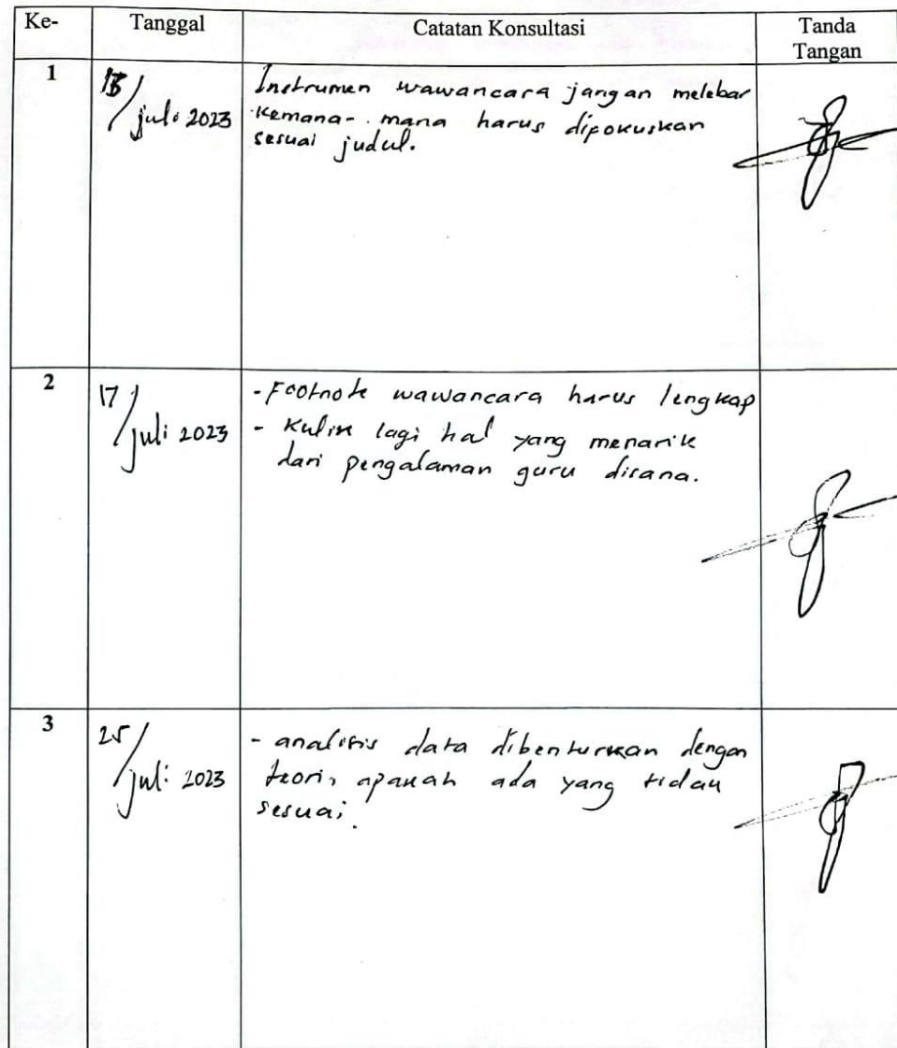 Ke-
Tanggal
Catatan Konsultasi
Tanda
Tangan
1
/ juli 2023
Instrumen wawancara jangan melebar
kemana-mana harus dipokuskan
sesuai judul.
2
17/
juli 2023
- Footnote wawancara harus lengkap
- Kulik lagi hal yang menarik
dari pengalaman guru disana.
3
25/
juli 2023
- analisis data dibenturkan dengan
teori, apakah ada yang tidak
sesuai.